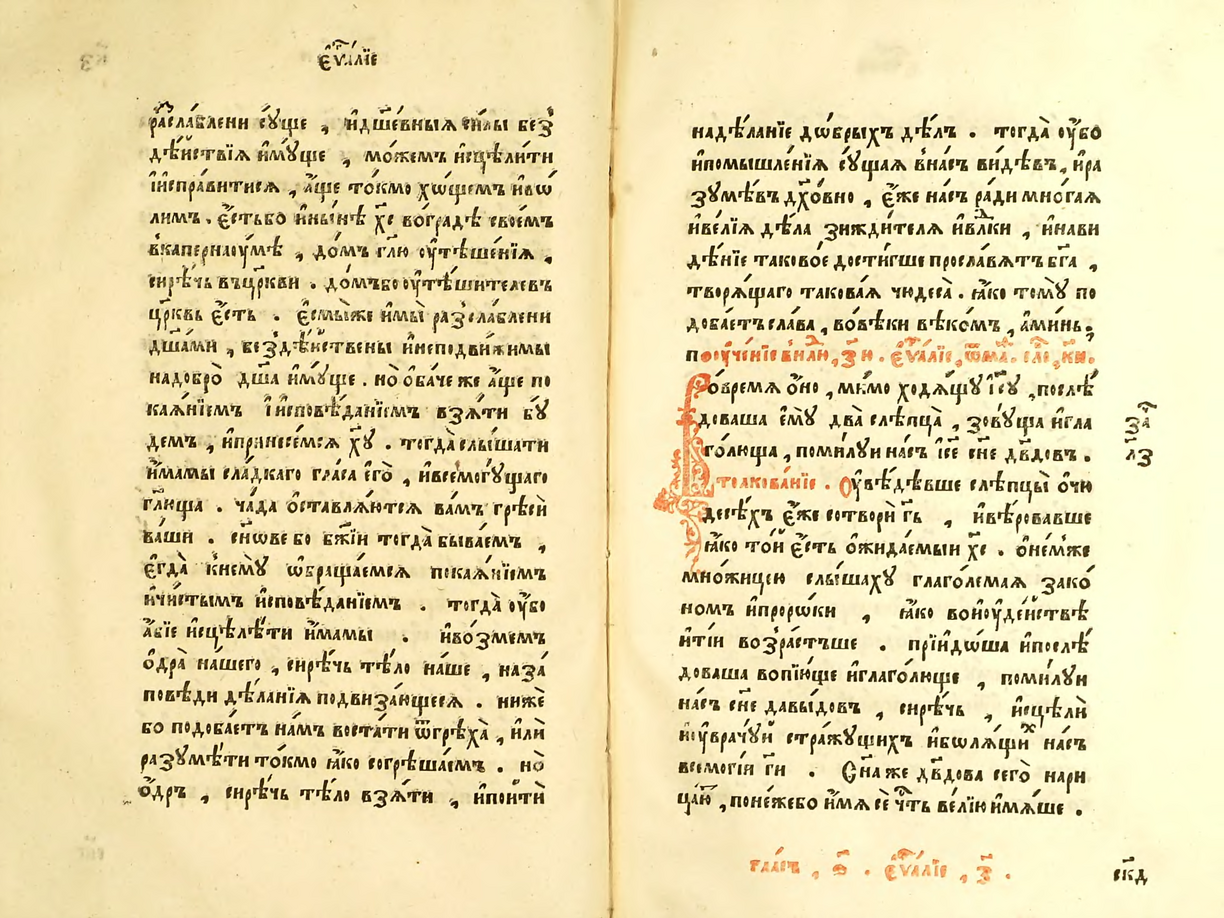 є҆ѵⷢ҇лїе
разсла́блени сꙋ́ще , и҆дш҃евныѧ си́лы без̾
дѣ́йствїѧ и҆мꙋще , мо́жемъ и҆сцѣли́ти
і҆испра́витисѧ , а҆́ще то́кмо хо́щемъ и҆вѡ
лимъ . є҆́стьбо и҆нн҃ѣ х҃с воградѣ̀ свое́мъ
вкаперна́ꙋмѣ , до́мъ г҃лю оу҆тѣше́нїѧ ,
сирѣ́чь въцр҃кви . до́мъбо оу҆тѣши́телевъ
цр҃квь є҆́сть . є҆смы́же и҆мы̀ разсла́блени
дш҃а́ми , бездѣ́йствены и҆неподви́жимы
надобро̀ дш҃а и҆мꙋще . но ѻ҆ба́че же а҆́ще по
каѧ́нїемъ і҆исповѣ́данїемъ взѧ́ти бꙋ́
демъ , и҆принесе́мсѧ хꙋ҃ . тогда̀ слы́шати
и҆́мамы сла́дкаго гла́са є҆гѡ̀ , и҆всемогꙋ́щаго
гл҃юща . ча́да ѻ҆ставлѧ́ютсѧ ва́мъ грѣсѝ
ва́ши . сн҃ове бо бж҃їи тогда̀ быва́емъ ,
є҆гда̀ кнемꙋ̀ ѡ҆браща́емсѧ покаѧ́нїемъ
и҆чи́стымъ и҆сповѣ́данїемъ . тогда̀ оу҆́бо
а҆́бїе и҆сцѣлѣ́ти и҆́мамы . и҆во́змемъ
ѻ҆дра̀ на́шего , сирѣ́чь тѣ́ло на́ше , наза́
повѣди дѣ́ланїѧ подвиза́ющеесѧ . ниже́
бо подоба́етъ на́мъ воста́ти ѿгрѣха̀ , и҆лѝ
разꙋмѣ́ти то́кмо ꙗ҆́ко согрѣша́емъ . но̀
ѻ҆́дръ , сирѣ́чь тѣ́ло взѧ́ти , и҆поитѝ
надѣ́ланїе до́брыхъ дѣ́лъ . тогда̀ оу҆́бо
и҆помышле́нїѧ сꙋ́щаѧ вна́съ ви́дѣвъ , и҆ра
зꙋмѣ́въ дх҃о́вно , є҆́же на́съ ра́ди мно́гаѧ
и҆ве́лїѧ дѣ́ла зижди́телѧ и҆влⷣки , и҆нави
дѣ́нїе таково́е дости́гше просла́вѧтъ бг҃а ,
творѧ́щаго такова́ѧ чюдеса̀ . ꙗ҆́ко томꙋ̀ по
доба́етъ сла́ва , вовѣ́ки вѣко́мъ , а҆ми́нь .
поꙋче́нїе внⷣлю , з҃ѝ . є҆ѵⷢ҇лїе , ѿмⷴ . глⷡ , к҃и .
Вовре́мѧ ѻ҆́но , ми́мо ходѧ́щꙋ і҆с҃ꙋ , послѣ́
доваша є҆мꙋ̀ два̀ слѣпца̀ , зовꙋ́ща и҆гла
го́люща , поми́лꙋи на́съ і҆с҃е сн҃е дв҃довъ .
за҃
л҃з
толкова́нїе . Оу҆вѣ́дѣвше слѣпцы̀ ѻ҆чю
десѣ́хъ є҆́же сотворѝ гь҃ , и҆вѣ́ровавше
ꙗ҆́ко то́й є҆́сть ѻ҆жида́емыи х҃с . ѻ҆не́мже
мно́жицею слы́шахꙋ глаго́лемаѧ зако́
номъ и҆прⷪ҇рѡки , ꙗ҆́ко воі҆ꙋде́йствѣ
и҆ті́и возра́стъше . прїидо́ша и҆послѣ́
доваша вопїю́ще и҆глаго́люще , поми́лꙋи
на́съ сн҃е давы́довъ , сирѣ́чь , и҆сцѣлѝ
и҆оу҆врачꙋ́й стра́жꙋщихъ и҆болѧ́щиⷯ на́съ
всемогі́и гⷭ҇и . Сн҃а же дв҃дова сего̀ нари
ца́ю , понеже́бо и҆́мѧ сѐ че́ть ве́лїю и҆мѧ́ше .
гла́съ , ѳ҃ . є҆ѵⷢ҇лїе , з҃ .
скд